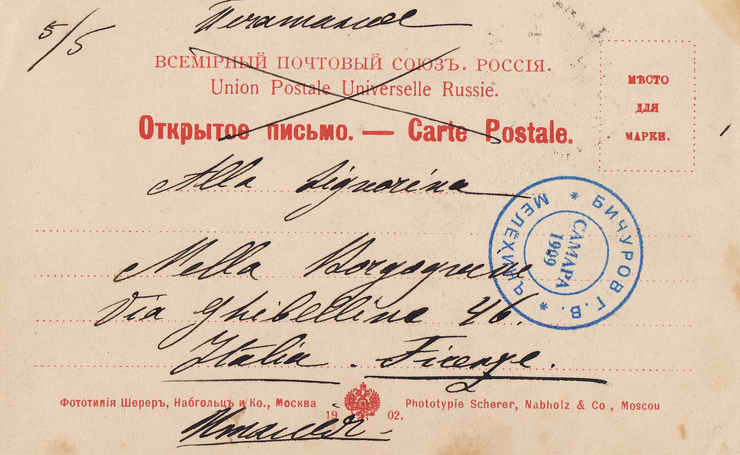 5/5
ВСЕМІРНЫЙ ПОЧТОВЫЙ СОЮЗЪ. РОССІЯ.
Union Postale Universelle Russie.
Открытое письмо. — Carte Postale.
МѢСТО
ДЛЯ
МАРКИ.
Alla Signorina
БИЧУРОВ Г. В. *
САМАРА
1909
Nella
Via Ghibellina 46.
Italia. Firenze.
Фототипія Шереръ, Набгольцъ и Ко., Москва 1902. Phototypie Scherer, Nabholz & Co, Moscou